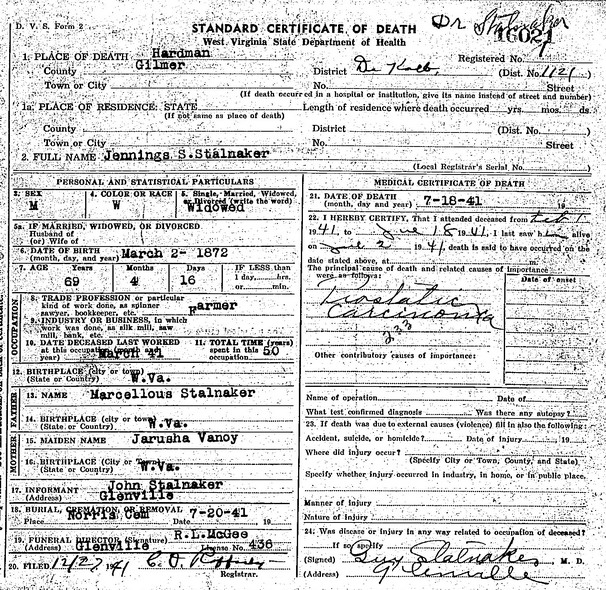 D. V. S. Form 2
STANDARD CERTIFICATE OF DEATH
West Virginia State Department of Health
Dr Stalnaker
16021
1. PLACE OF DEATH Hardman
Registered No.
County Gilmer
District De Kalb, (Dist. No. 1121)
Town or City
No. Street
(If death occurred in a hospital or institution, give its name instead of street and number)
1a. PLACE OF RESIDENCE: STATE
(If not same as place of death)
Length of residence where death occurred yrs. mos. ds.
County
District (Dist. No. )
Town or City
No. Street
2. FULL NAME Jennings S.Stalnaker
(Local Registrar's Serial No.
PERSONAL AND STATISTICAL PARTICULARS
3. SEX M
4. COLOR OR RACE W
5. Single, Married, Widowed, or Divorced (write the word) Widowed
5a. IF MARRIED, WIDOWED, OR DIVORCED
Husband of
(or) Wife of
6. DATE OF BIRTH
(month, day, and year) March 2- 1872
7. AGE Years 69 Months 4 Days 16
IF LESS than
1 day, hrs.
or min.
OCCUPATION
8. TRADE PROFESSION or particular
kind of work done, as spinner
sawyer, bookkeeper, etc. Farmer
9. INDUSTRY OR BUSINESS, in which
work was done, as silk mill, saw
mill, bank, etc.
10. DATE DECEASED LAST WORKED
at this occupation (month and
year) March 41
11. TOTAL TIME (years)
spent in this
occupation 50
12. BIRTHPLACE (city or town)
(State or Country) W.Va.
FATHER
13. NAME Marcellous Stalnaker
14. BIRTHPLACE (city or town)
(State or Country) W.Va.
MOTHER
15. MAIDEN NAME Jarusha Vanoy
16. BIRTHPLACE (City or Town)
(State or Country) W.Va.
17. INFORMANT John Stalnaker
(Address) Glenville
18. BURIAL, CREMATION, OR REMOVAL
Place Norris Cem Date 7-20-41 19
19. FUNERAL DIRECTOR (Signature) R.L.McGee
(Address) Glenville License No. 436
20. FILED 12/27 1941
Registrar.
MEDICAL CERTIFICATE OF DEATH
21. DATE OF DEATH
(month, day and year) 7-18-41 19
22. I HEREBY CERTIFY, That I attended deceased from
1941, to 18 1941, I last saw him alive
on 2 1941, death is said to have occurred on the
date stated above, at m.
The principal cause of death and related causes of importance
were as follows:
Date of onset
Prostatic
Carcinoma
Other contributory causes of importance:
Name of operation Date of
What test confirmed diagnosis Was there any autopsy?
23. If death was due to external causes (violence) fill in also the following:
Accident, suicide, or homicide? Date of Injury 19
Where did injury occur?
(Specify City or Town, County, and State)
Specify whether injury occurred in industry, in home, or in public place.
Manner of Injury
Nature of Injury
24. Was disease or injury in any way related to occupation of deceased?
If so specify
(Signed) Guy Stalnaker M. D.
(Address) Glenville